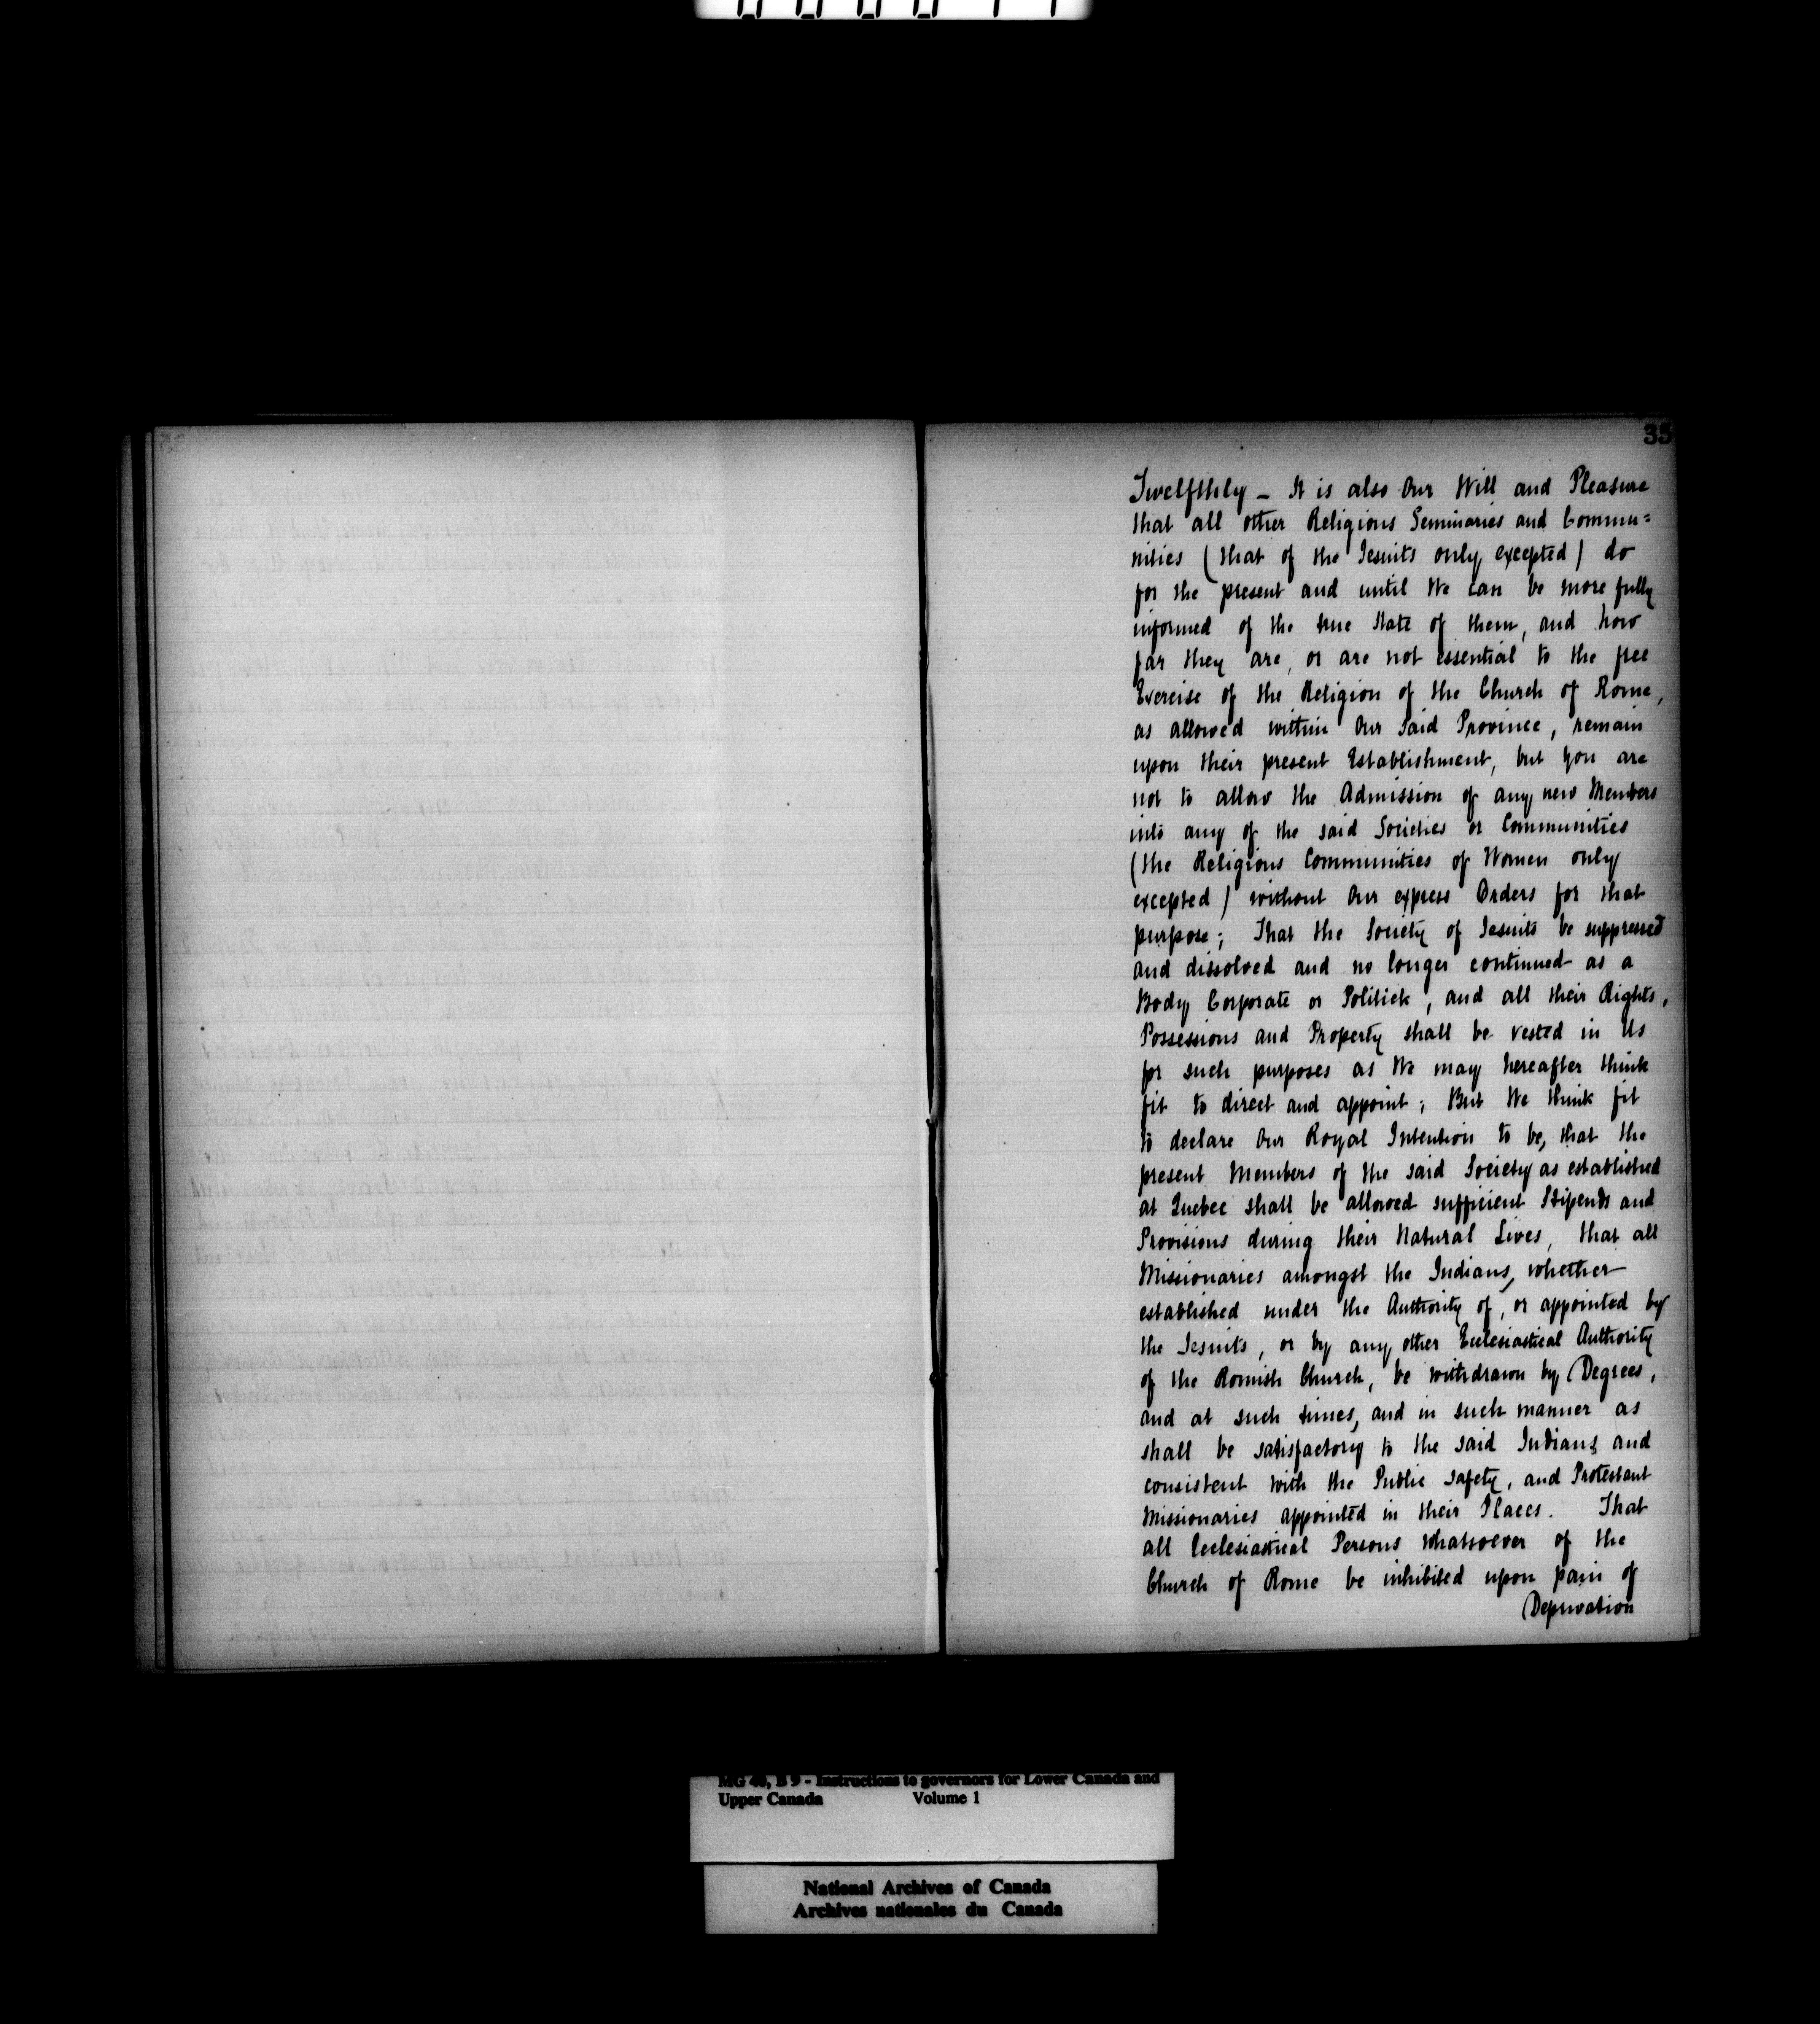 35
Twelfthly - It is also Our Will and Pleasure
that all other Religious Seminaries and Commu=
nities (that of the Jesuits only excepted) do
for the present and until We can be more fully
informed of the true State of them, and how
far they are, or are not essential to the free
Exercise of the Religion of the Church of Rome,
as allowed within Our said Province, remain
upon their present Establishment, but you are
not to allow the Admission of any new Members
into any of the said Societies or Communities
(the Religious Communities of Women only
excepted) without Our express Orders for that
purpose; That the Society of Jesuits be suppressed
and dissolved and no longer continued as a
Body Corporate or Politick, and all their Rights,
Possessions and Property shall be vested in Us
for such purposes as We may hereafter think
fit to direct and appoint; But We think fit
to declare Our Royal Intention to be, that the
present Members of the said Society as established
at Quebec shall be allowed sufficient Stipends and
Provisions during their Natural Lives, that all
Missionaries amongst the Indians, whether
established under the Authority of, or appointed by
the Jesuits, or by any other Ecclesiastical Authority
of the Romish Church, be withdrawn by Degrees,
and at such times, and in such manner as
shall be satisfactory to the said Indians and
consistent with the Public Safety, and Protestant
Missionaries appointed in their Places. That
all Ecclesiastical Persons whatsoever of the
Church of Rome be inhibited upon pain of
Deprivation
MG 40, B 9 - Instructions to governors for Lower Canada and
Upper Canada Volume 1
National Archives of Canada
Archives nationales du Canada